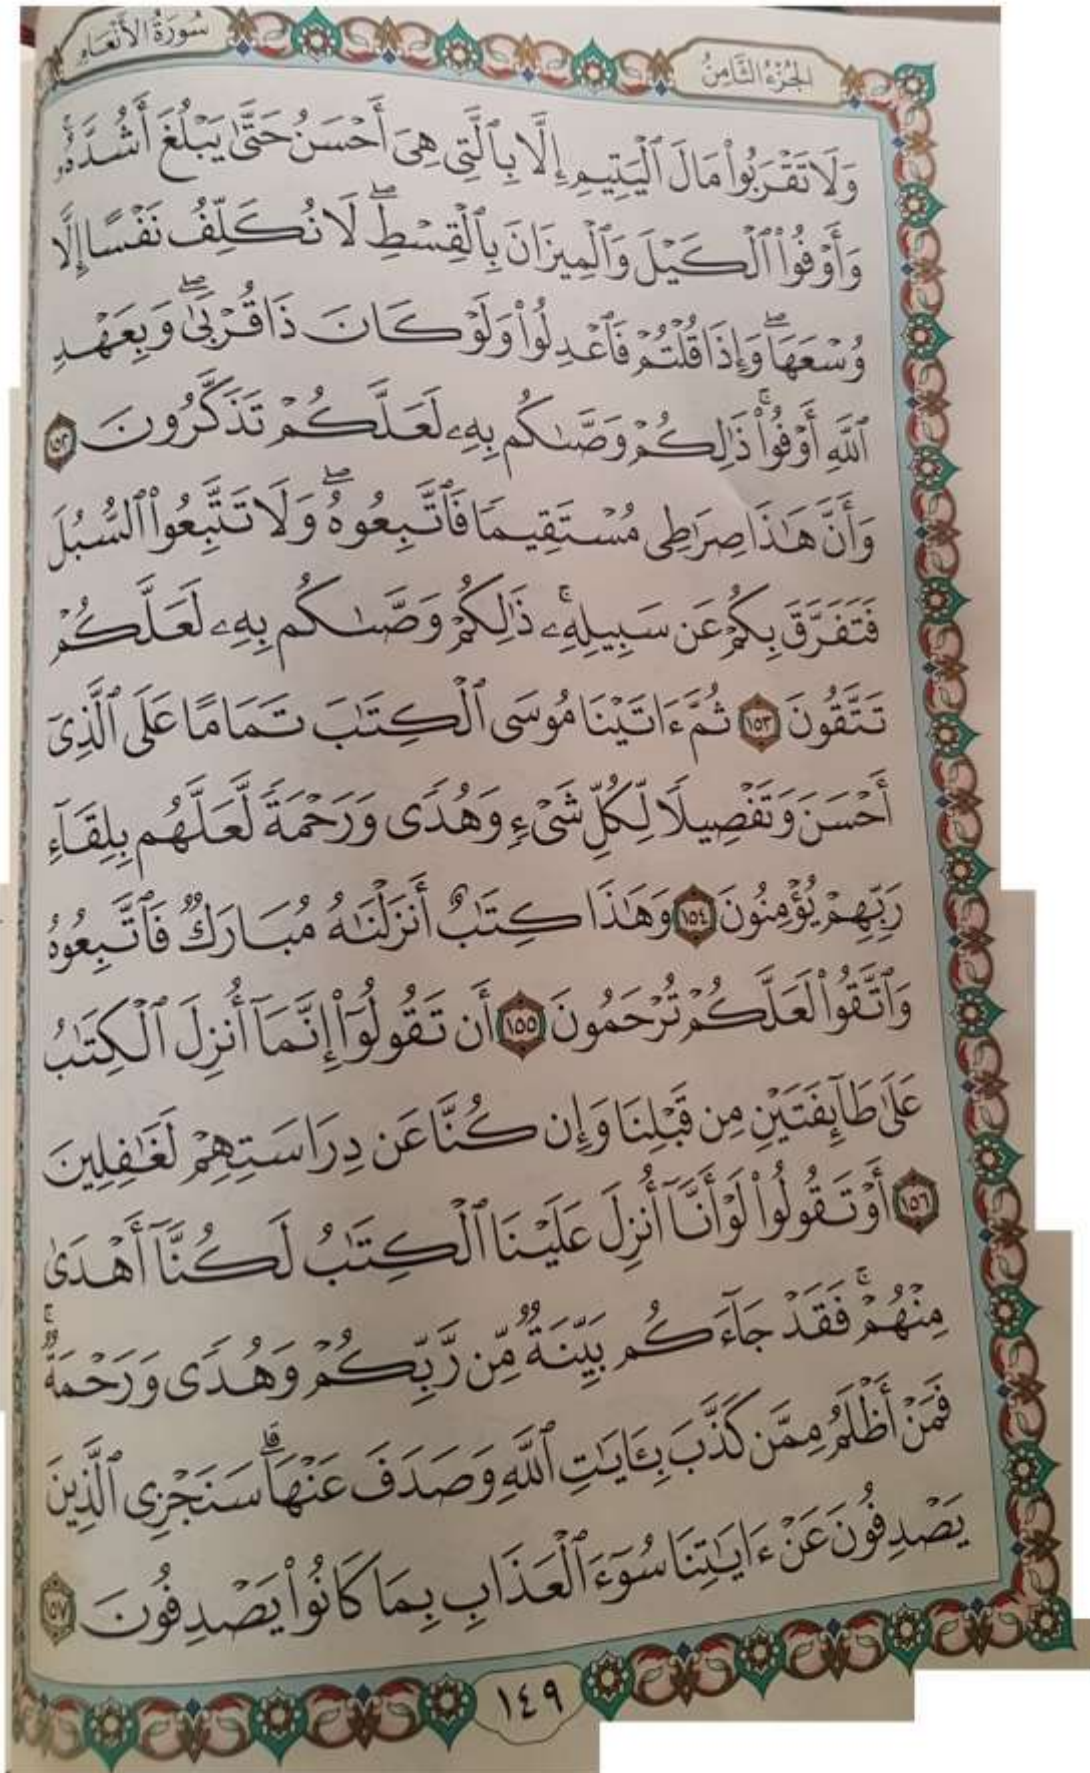 الجُزْءُ الثَّامِنُ
سُورَةُ الأَنْعَامِ
وَلَا تَقْرَبُوا۟ مَالَ ٱلْيَتِيمِ إِلَّا بِٱلَّتِى هِىَ أَحْسَنُ حَتَّىٰ يَبْلُغَ أَشُدَّهُۥ
وَأَوْفُوا۟ ٱلْكَيْلَ وَٱلْمِيزَانَ بِٱلْقِسْطِ ۖ لَا نُكَلِّفُ نَفْسًا إِلَّا
وُسْعَهَا ۖ وَإِذَا قُلْتُمْ فَٱعْدِلُوا۟ وَلَوْ كَانَ ذَا قُرْبَىٰ ۖ وَبِعَهْدِ
ٱللَّهِ أَوْفُوا۟ ۚ ذَٰلِكُمْ وَصَّىٰكُم بِهِۦ لَعَلَّكُمْ تَذَكَّرُونَ ١٥٢
وَأَنَّ هَٰذَا صِرَٰطِى مُسْتَقِيمًا فَٱتَّبِعُوهُ ۖ وَلَا تَتَّبِعُوا۟ ٱلسُّبُلَ
فَتَفَرَّقَ بِكُمْ عَن سَبِيلِهِۦ ۚ ذَٰلِكُمْ وَصَّىٰكُم بِهِۦ لَعَلَّكُمْ
تَتَّقُونَ ١٥٣ ثُمَّ ءَاتَيْنَا مُوسَى ٱلْكِتَٰبَ تَمَامًا عَلَى ٱلَّذِىٓ
أَحْسَنَ وَتَفْصِيلًا لِّكُلِّ شَىْءٍ وَهُدًى وَرَحْمَةً لَّعَلَّهُم بِلِقَآءِ
رَبِّهِمْ يُؤْمِنُونَ ١٥٤ وَهَٰذَا كِتَٰبٌ أَنزَلْنَٰهُ مُبَارَكٌ فَٱتَّبِعُوهُ
وَٱتَّقُوا۟ لَعَلَّكُمْ تُرْحَمُونَ ١٥٥ أَن تَقُولُوٓا۟ إِنَّمَآ أُنزِلَ ٱلْكِتَٰبُ
عَلَىٰ طَآئِفَتَيْنِ مِن قَبْلِنَا وَإِن كُنَّا عَن دِرَاسَتِهِمْ لَغَٰفِلِينَ
١٥٦ أَوْ تَقُولُوا۟ لَوْ أَنَّآ أُنزِلَ عَلَيْنَا ٱلْكِتَٰبُ لَكُنَّآ أَهْدَىٰ
مِنْهُمْ ۚ فَقَدْ جَآءَكُم بَيِّنَةٌ مِّن رَّبِّكُمْ وَهُدًى وَرَحْمَةٌ ۚ
فَمَنْ أَظْلَمُ مِمَّن كَذَّبَ بِـَٔايَٰتِ ٱللَّهِ وَصَدَفَ عَنْهَا ۗ سَنَجْزِى ٱلَّذِينَ
يَصْدِفُونَ عَنْ ءَايَٰتِنَا سُوٓءَ ٱلْعَذَابِ بِمَا كَانُوا۟ يَصْدِفُونَ ١٥٧
١٤٩